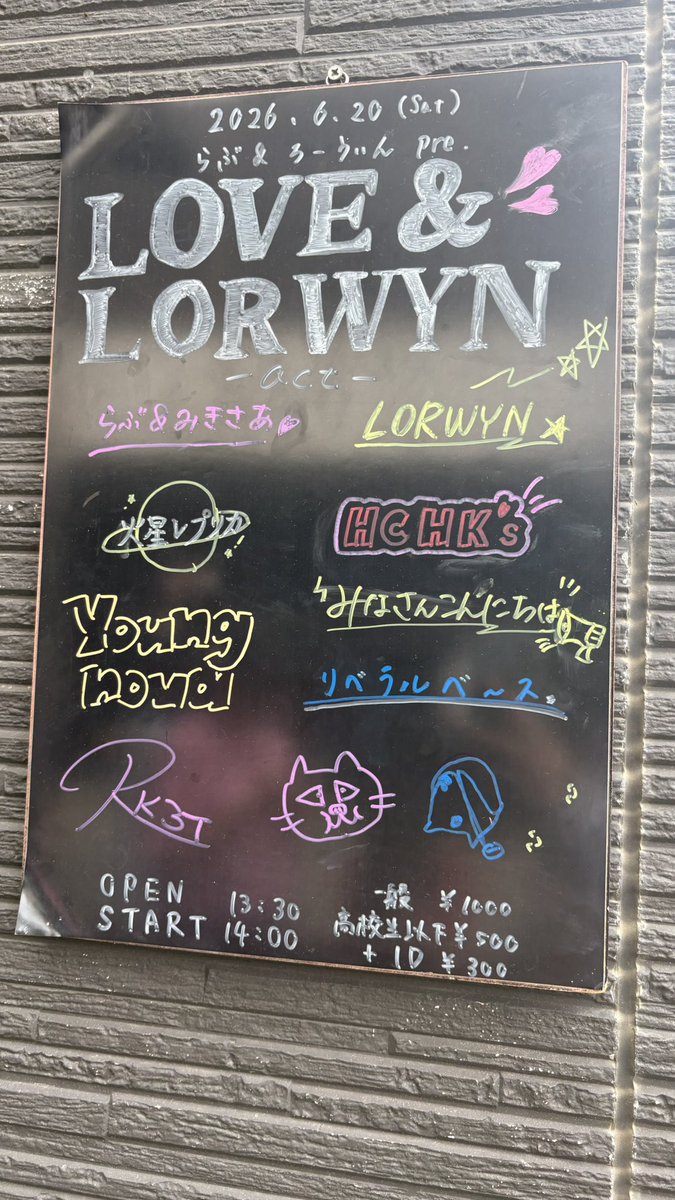 2026.6.20 (Sat)
らぶ&ろーうぃん pre.
LOVE &
LORWYN
-act-
らぶ&みきさあ
LORWYN
火星レプリカ
HCHK's
Young
nova
みなさんこんにちは
リベラルベース。
RK3T
OPEN 13:30
START 14:00
一般 ¥1000
高校生以下 ¥500
+1D ¥300